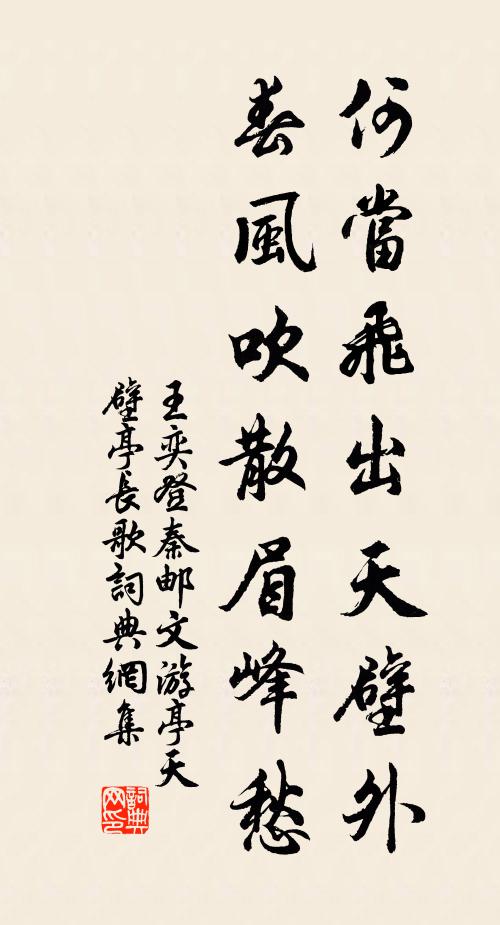 何當飛出天壁外
春風吹散眉峰愁
王奕登秦邮文游亭天
壁亭長歌詞典網集
詞典
网印